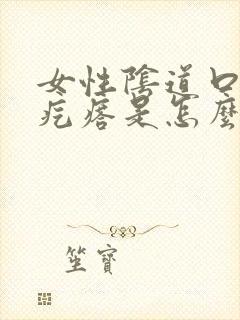 女性陰道口
疙瘩是怎麼
笙寶